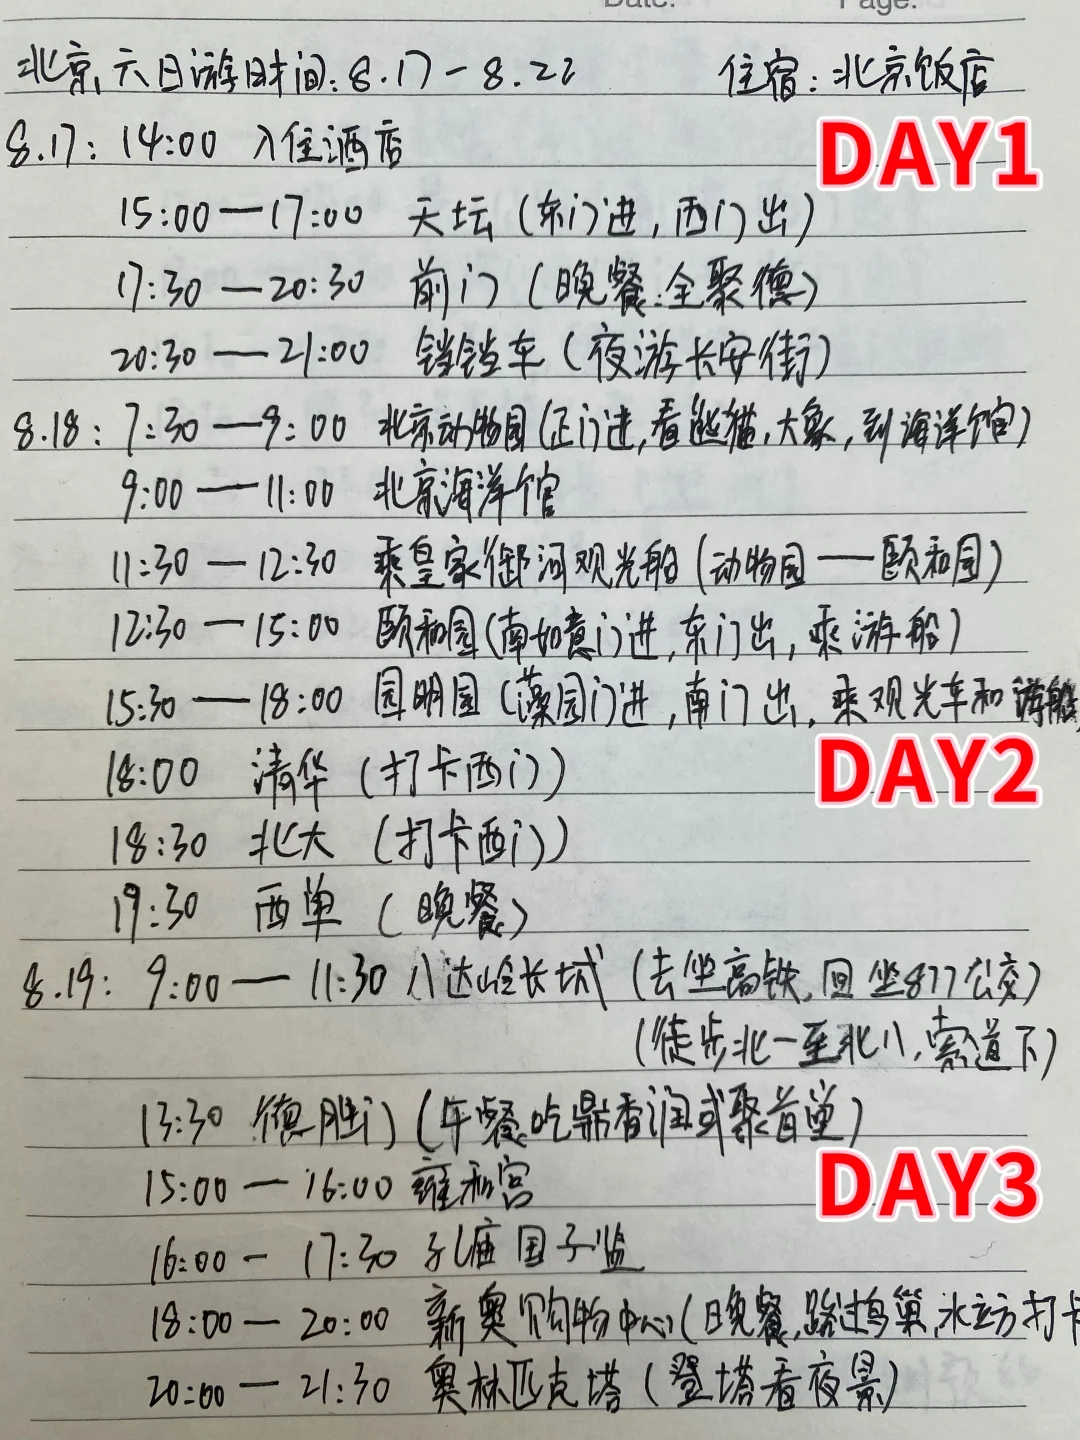 Date. Page.
北京六日游时间:8.17-8.22 住宿:北京饭店
8.17: 14:00 入住酒店
DAY1
15:00—17:00 天坛(东门进,西门出)
17:30—20:30 前门(晚餐:全聚德)
20:30—21:00 铛铛车(夜游长安街)
8.18: 7:30—9:00 北京动物园(正门进,看熊猫,大象,到海洋馆)
9:00—11:00 北京海洋馆
11:30—12:30 乘皇家御河观光船(动物园—颐和园)
12:30—15:00 颐和园(南如意门进,东门出,乘游船)
15:30—18:00 园明园(藻园门进,南门出,乘观光车和游船
18:00 清华(打卡西门)
DAY2
18:30 北大(打卡西门)
19:30 西单(晚餐)
8.19: 9:00—11:30 八达岭长城(去坐高铁,回坐877公交)
(徒步北一至北八,索道下)
13:30 德胜门(午餐吃鼎香润或聚首堂)
DAY3
15:00—16:00 雍和宫
16:00-17:30 孔庙国子监
18:00—20:00 新奥购物中心(晚餐,路过鸟巢,水立方打卡
20:00—21:30 奥林匹克塔(登塔看夜景)